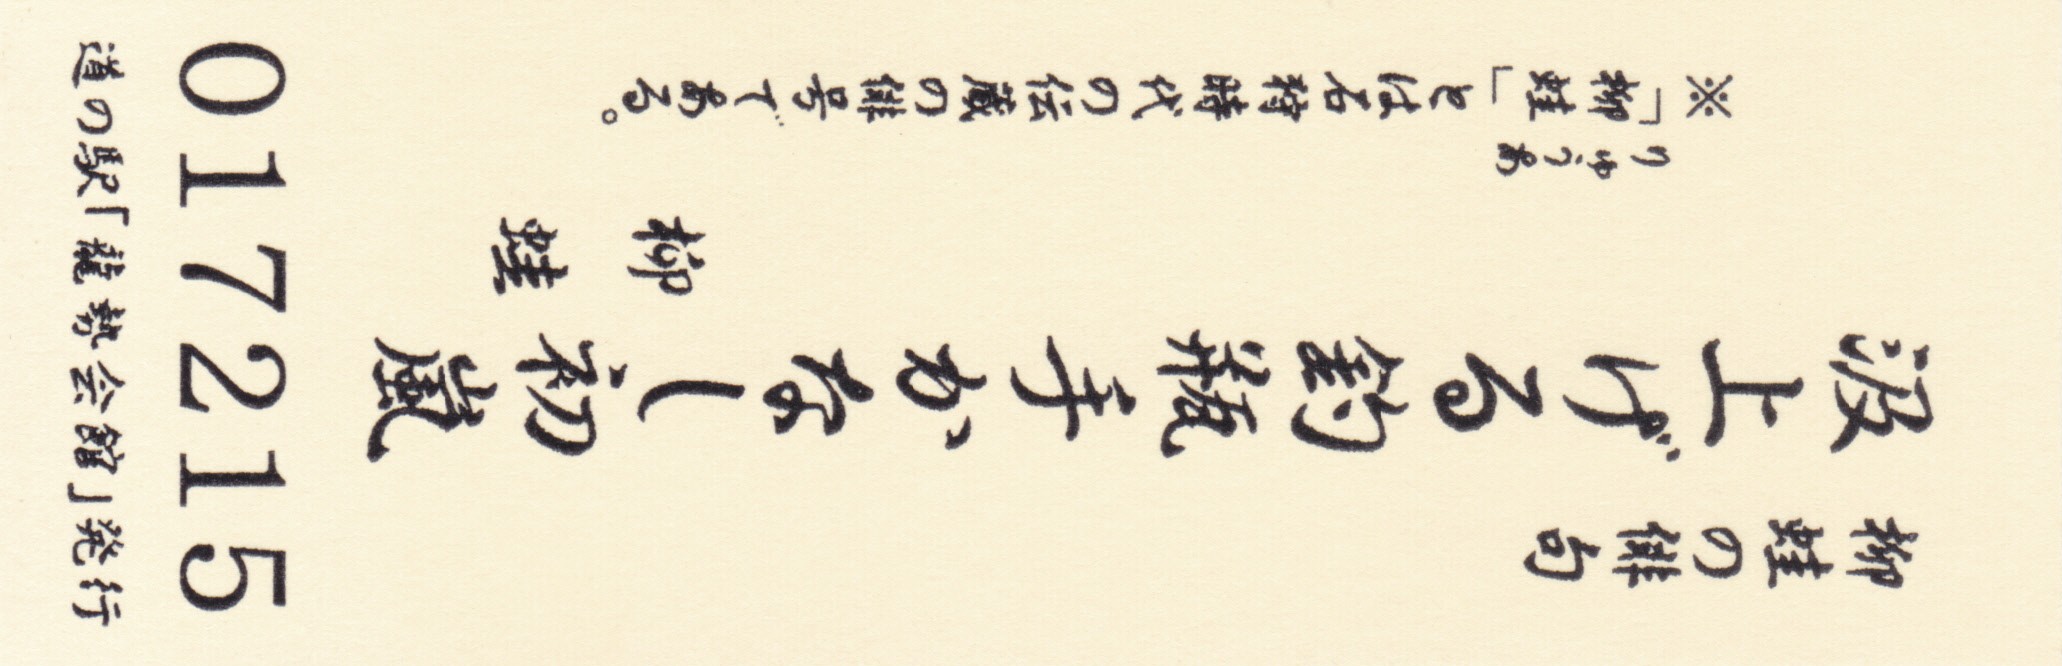 柳蛙の俳句
汲上げる釣瓶手かなし初嵐
柳蛙
りゅうあ
※「柳蛙」とは石狩時代の伝蔵の俳号である。
017215
道の駅「龍勢会館」発行